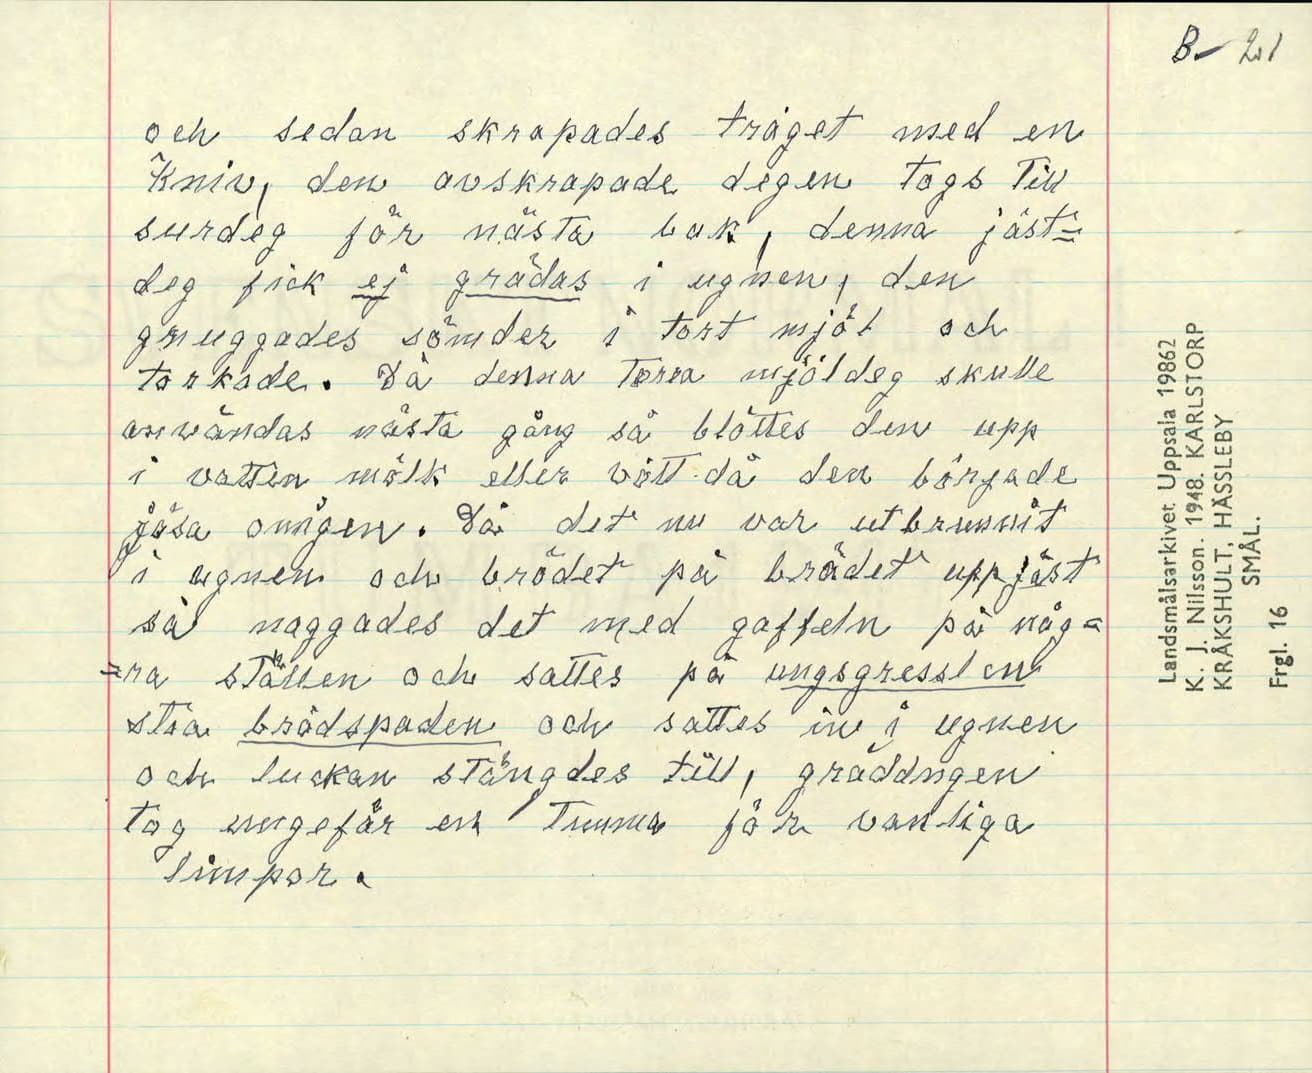 B. 21
och sedan skrapades tråget med en
Kniv, den avskrapade degen togs till
surdeg för nästa bak, denna jäst=
deg fick ej grädas i ugnen, den
gnuggades sönder i tort mjöl och
torkade. Då denna torra mjöldeg skulle
användas nästa gång så blöttes den upp
i vatten mölk eller vött då den började
jäsa onigen. Då det nu var utbrunnit
i ugnen och brödet på brädet uppjäst
så naggades det med gaffeln på någ=
=ra ställen och sattes på ungsgresslen
stra brödspaden och sattes in i ugnen
och luckan stängdes till, gräddngen
tog ungefär en Timma för vanliga
limpor.
Landsmålsarkivet Uppsala 19862
K. J. Nilsson. 1948. KARLSTORP
KRÅKSHULT, HÄSSLEBY
SMÅL.
Frgl. 16